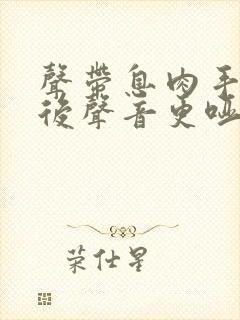 聲帶息肉手
後聲音更啞
荣仕星